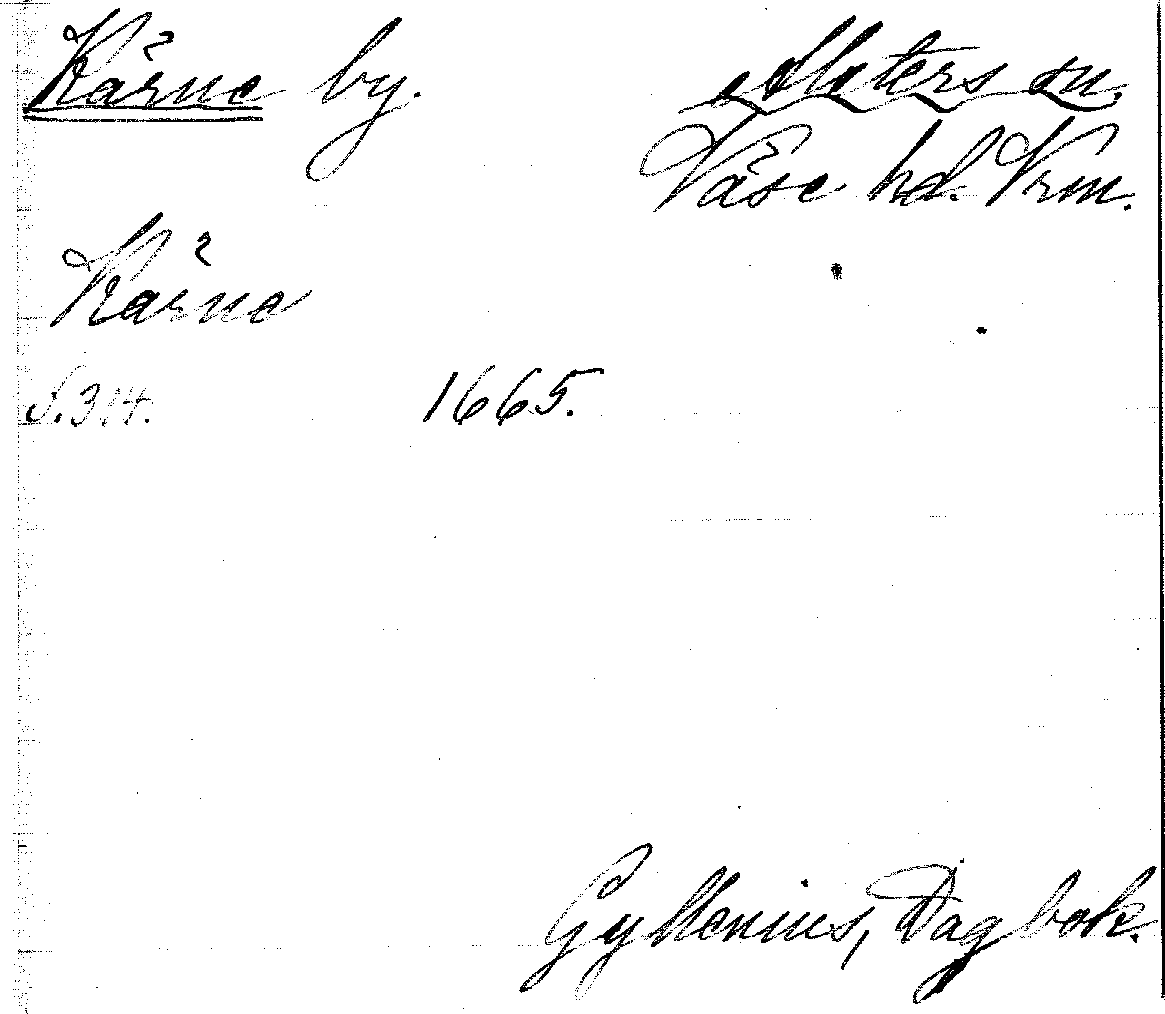 Kärne by. Alsters sn.
Väse hd. Vrm.
Kärne
S. 314. 1665.
Gyllenius, Dagbok.